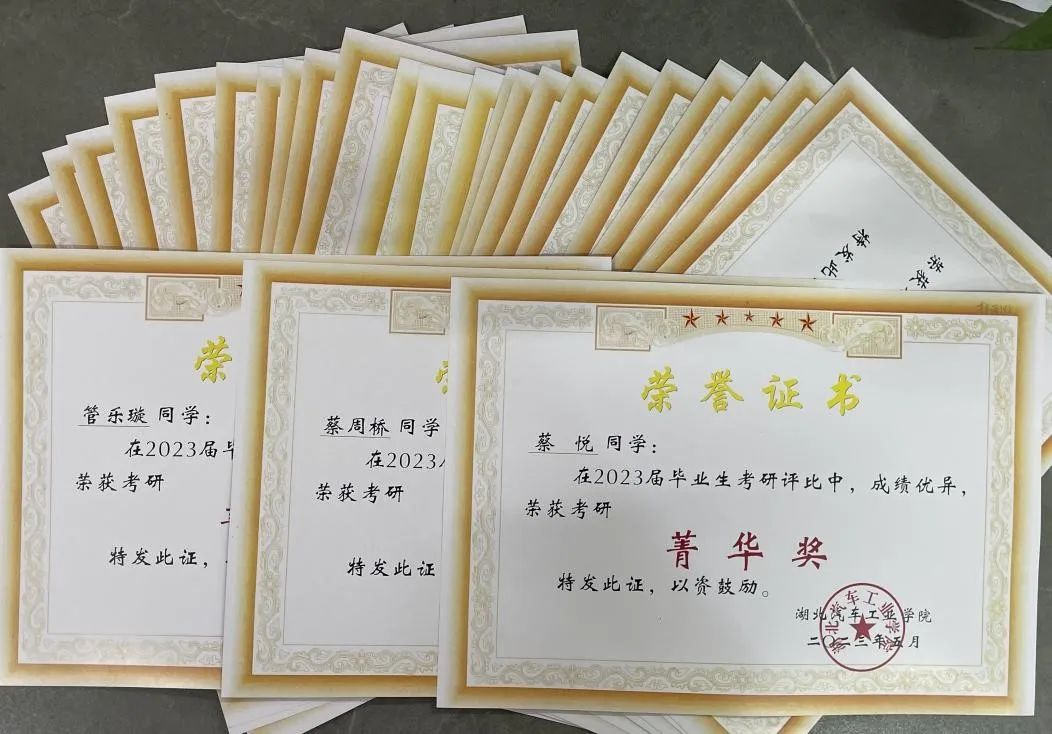 管乐璇 同学：
在2023届毕
荣获考研
特发此证，
蔡周桥 同学
在2023
荣获考研
特发此证
荣誉证书
蔡 悦 同学：
在2023届毕业生考研评比中，成绩优异，
荣获考研
菁华奖
特发此证，以资鼓励。
湖北汽车工业学院
二〇二三年五月
荣
特发此
荣获